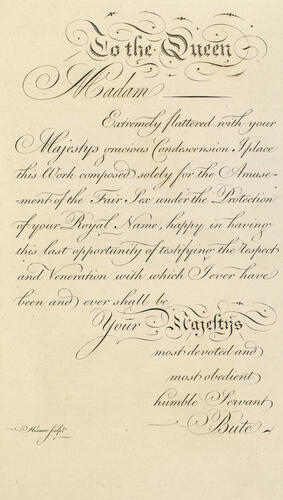 To the Queen
Madam
Extremely flattered with your
Majestys gracious Condescension I place
this Work composed solely for the Amuse-
ment of the Fair Sex under the Protection
of your Royal Name, happy in having
this last opportunity of testifying the respect
and Veneration with which I ever have
been and ever shall be
Your Majestys
most devoted and
most obedient
humble Servant
Bute